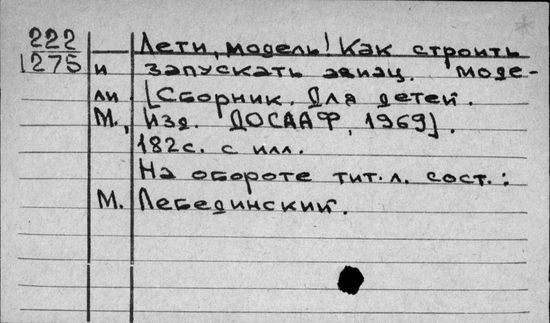 222
1275
Лети, модель! Как строить
и запускать авиац. моде-
ли. [Сборник. Для детей.
М., Изд. ДОСААФ, 1969].
182с. с илл.
На обороте тит. л. сост.:
М. Лебединский.